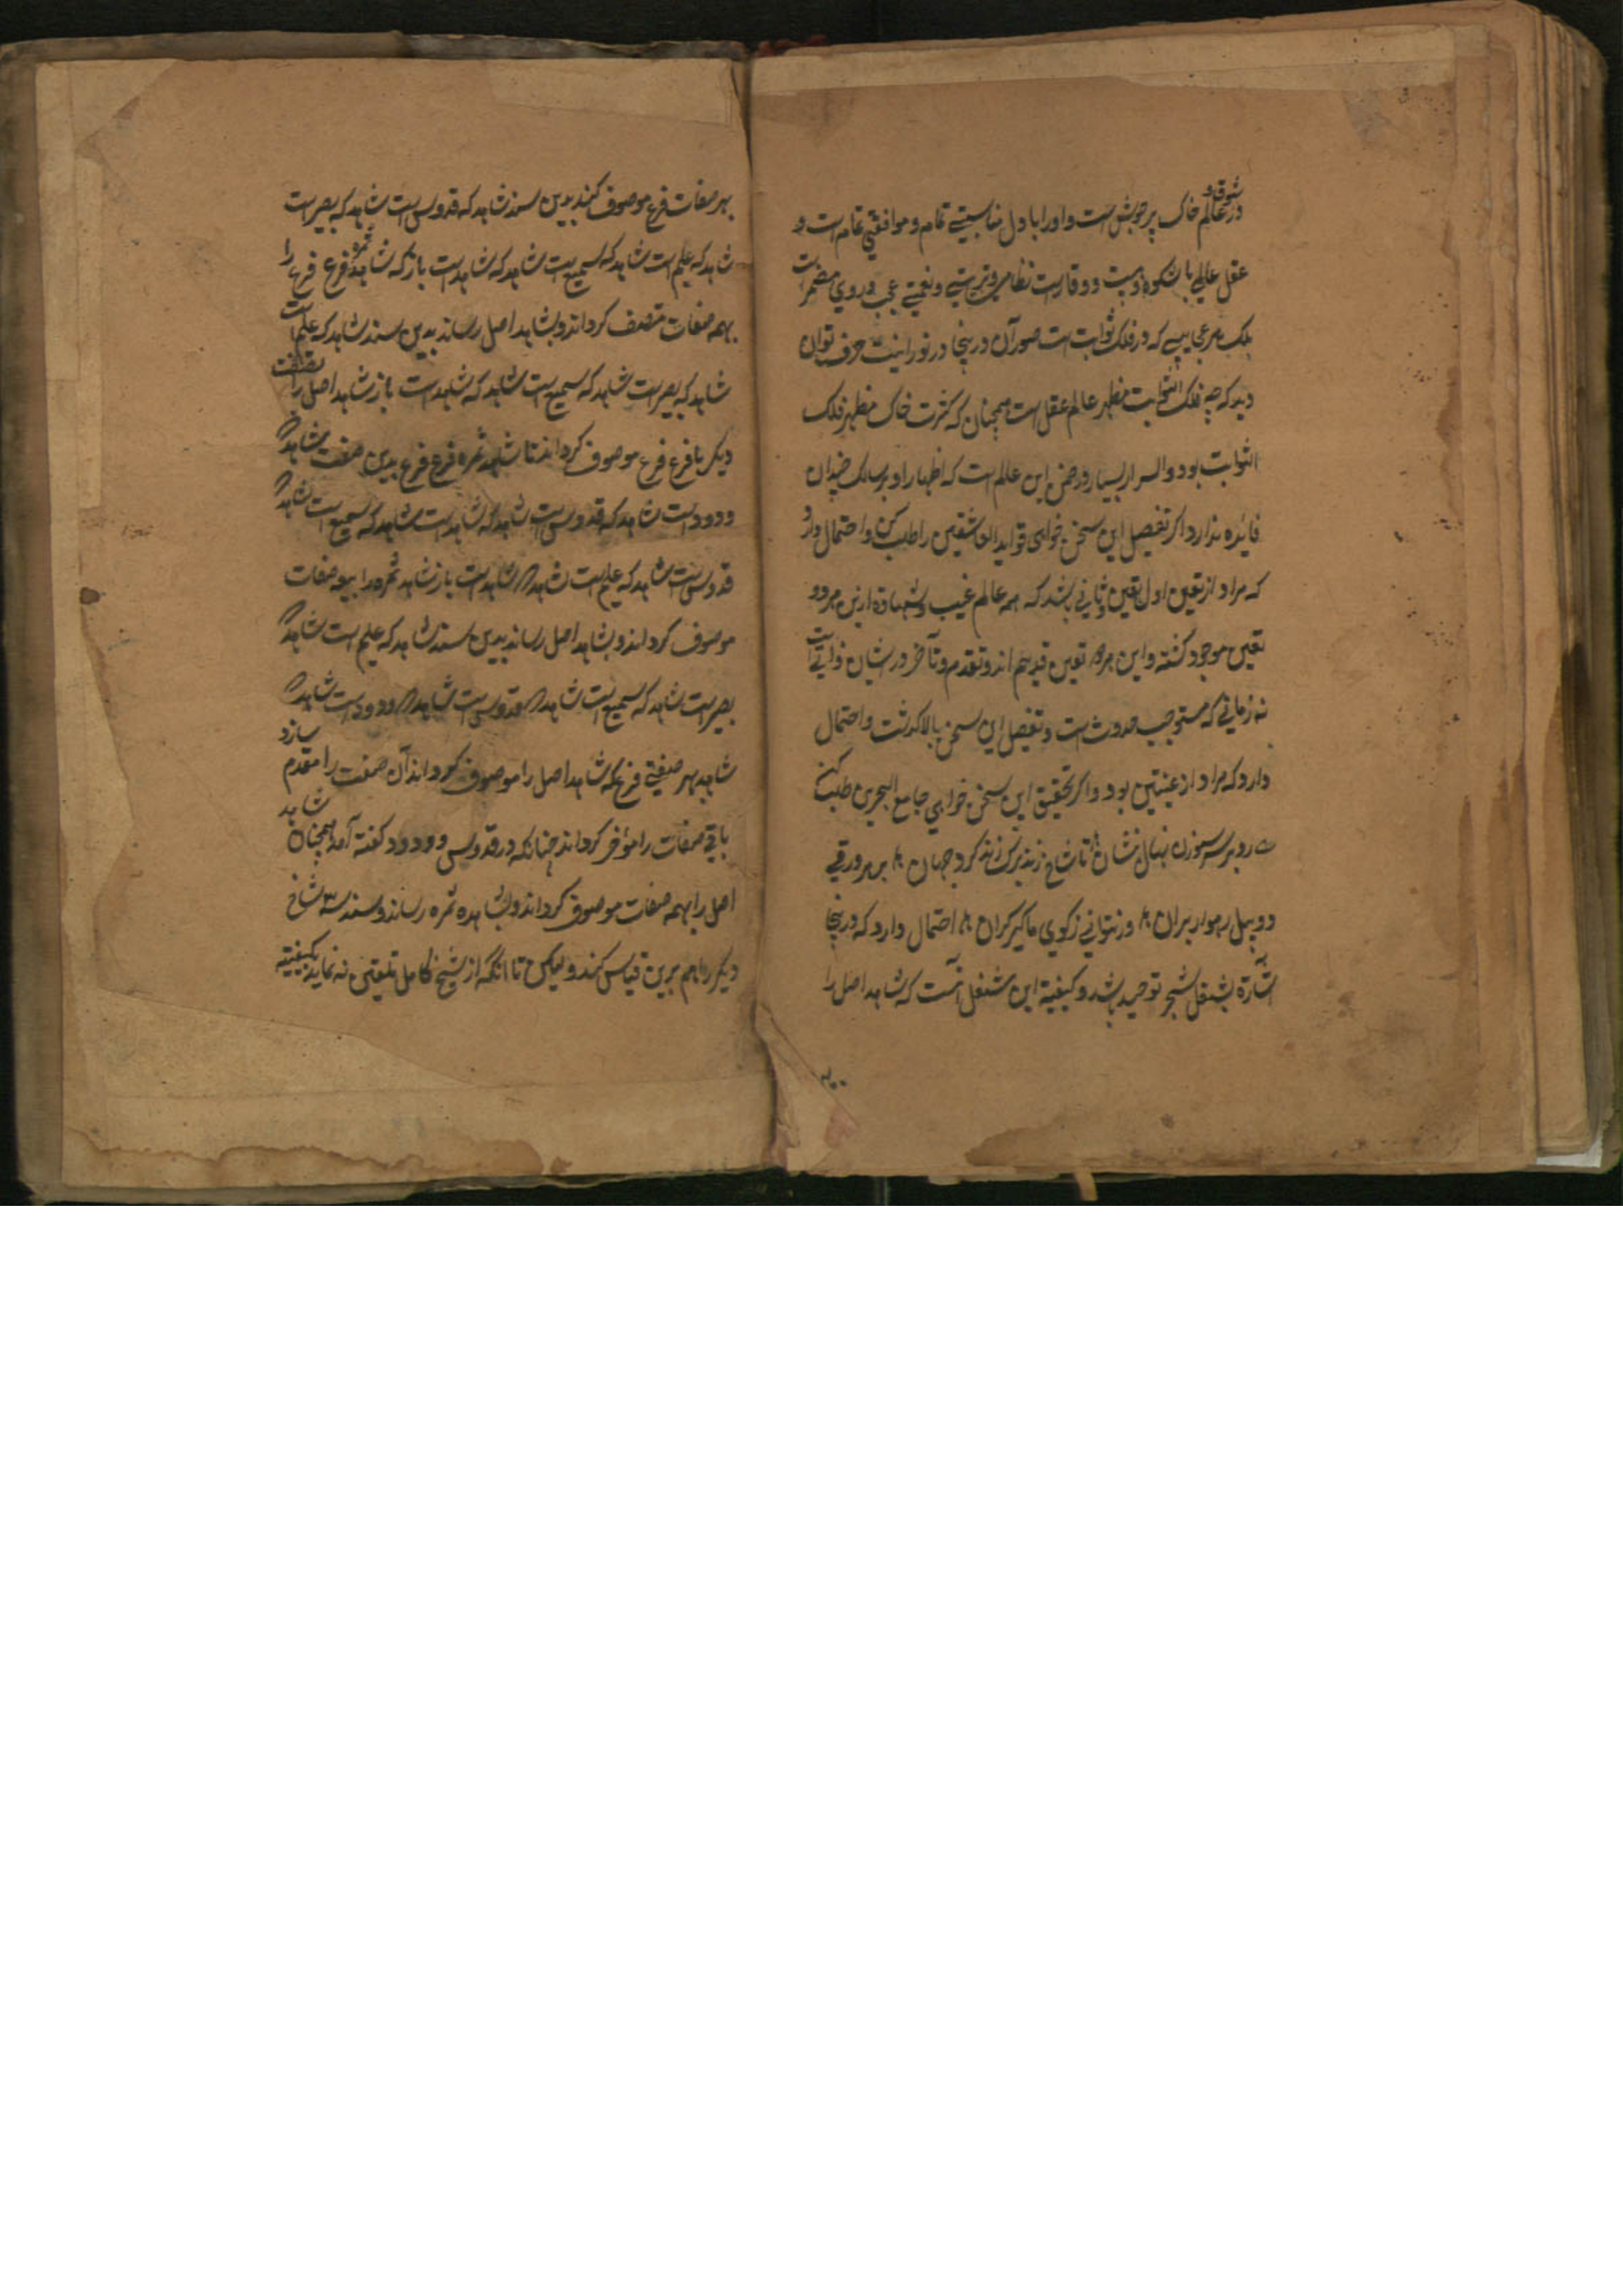 شوق و
در عالم خاک پر جوش است و او را با دل مناسبتی تمام و موافقتی تمام است و
عقل عالی با شکوه و وقارست نظامی و ترتیبی و نعمتی عجب در وی مضمر است
بلک هر عجایبی که در فلک ثوابت است صور آن درینجا در نورانیت حرف توان
دید که چه فلک الثوابت مظهر عالم عقل است همچنان که کثرت خاک مظهر فلک
الثوابت بود و اسرار بسیار در ضمن این عالم است که اظهار او بر سالک چندان
فایده ندارد اکر تفصیل این سخن خواهی فواید العاشقین را طلب کن و احتمال دارد
که مراد از تعین اول تعین ثانی باشد که همه عالم غیب و شهادة ازین هر دو
تعین موجود کشته و این هر دو تعین قدیم اند و تقدم و تأخر در ایشان ذاتی است
نه زمانی که مستوجب حدوث است و تفصیل این سخن بالا کذشت و احتمال
دارد که مراد از عینیتین بود و اکر تحقیق این سخن خواهی جامع البحرین طلب کن
رو بر سر سوزن نهال نشان تا شاخ زند برک زند کرد جهان بر هر ورقی
دو پیل رهوار بران ور نتوانی ز کوی ما کیر کران احتمال دارد که درینجا
اشارة بشغل شجر توحید باشد و کیفیة این شغل آنست که شاهد اصل را
بهر
بهر صفات فرع موصوف کند بدین سند شاهد که قدوس است شاهد که بصیر است
شاهد که علیم است شاهد که سمیع است شاهد که شاهد است باز که شاهد ثمره فرع فرع را
بهمه صفات متصف کرداند و بشاهد اصل رساند بدین سند شاهد که علیم است
شاهد که بصیر است شاهد که سمیع است شاهد که شاهد است باز شاهد اصل را بصفت
دیکر با فرع فرع موصوف کرداند تا شاهد ثمره فرع فرع بدین صفت شاهد که
ودود است شاهد که قدوس است شاهد که شاهد است شاهد که سمیع است شاهد که
قدوس است شاهد که علیم است شاهد که شاهد است باز شاهد ثمره را بهمه صفات
موصوف کرداند و بشاهد اصل رساند بدین سند شاهد که علیم است شاهد که
بصیر است شاهد که سمیع است شاهد که قدوس است شاهد که ودود است شاهد که
شاهد بهر صفتی فرع که شاهد اصل را موصوف کرداند آن صفت را مقدم سازد
باقی صفات را مؤخر کرداند چنانکه در قدوس و ودود کفته آمد همچنان شاهد
اصل را بهمه صفات موصوف کرداند و بشاهده ثمره رساند و سند سه شاخ
دیکر را هم برین قیاس کند و لیکن تا آنکه از شیخ کامل تلقین نه نماید بکیفیته